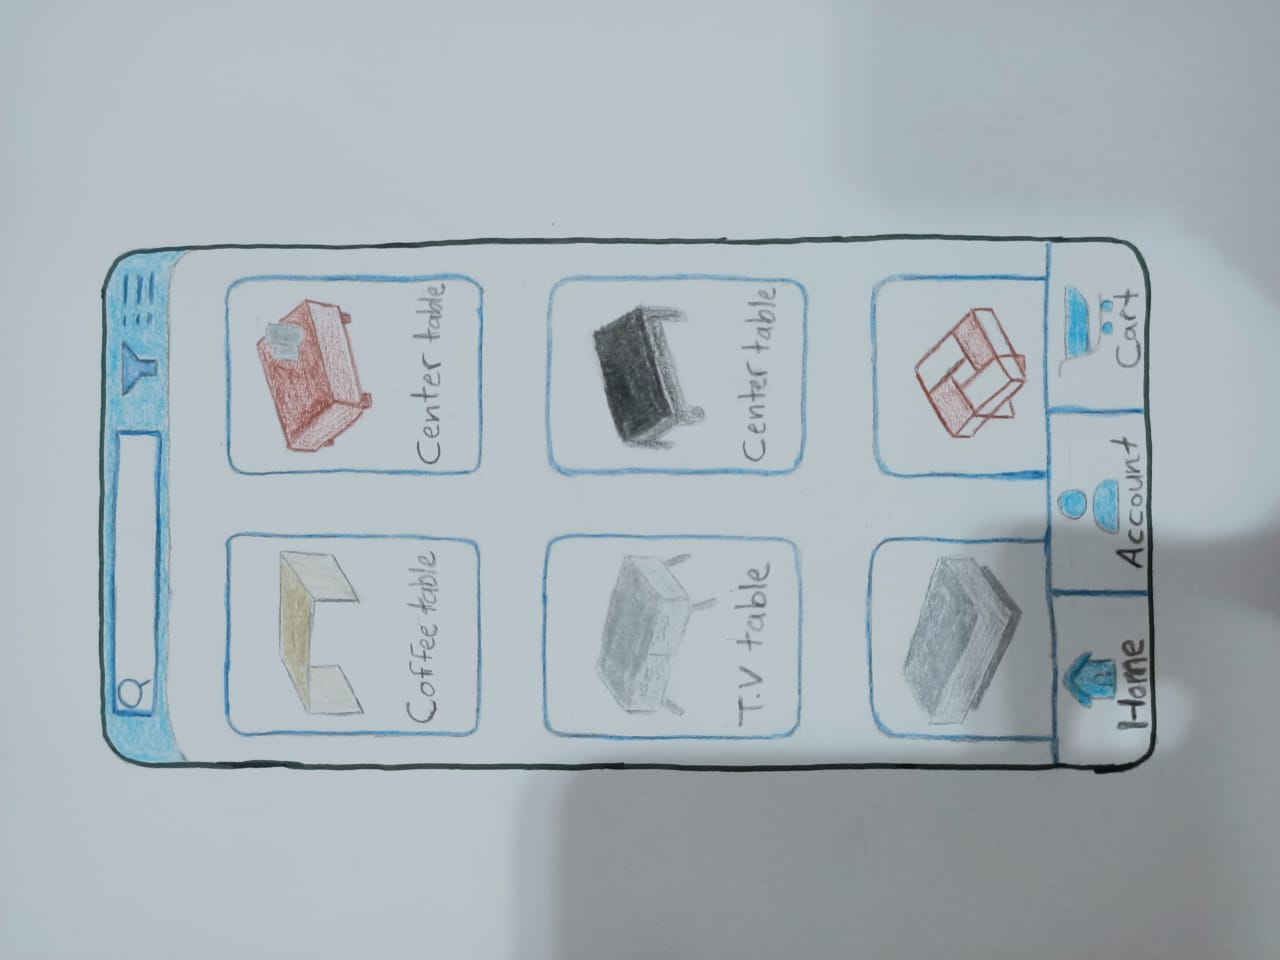 Coffee table
Center table
T.V table
Center table
Home
Account
Cart